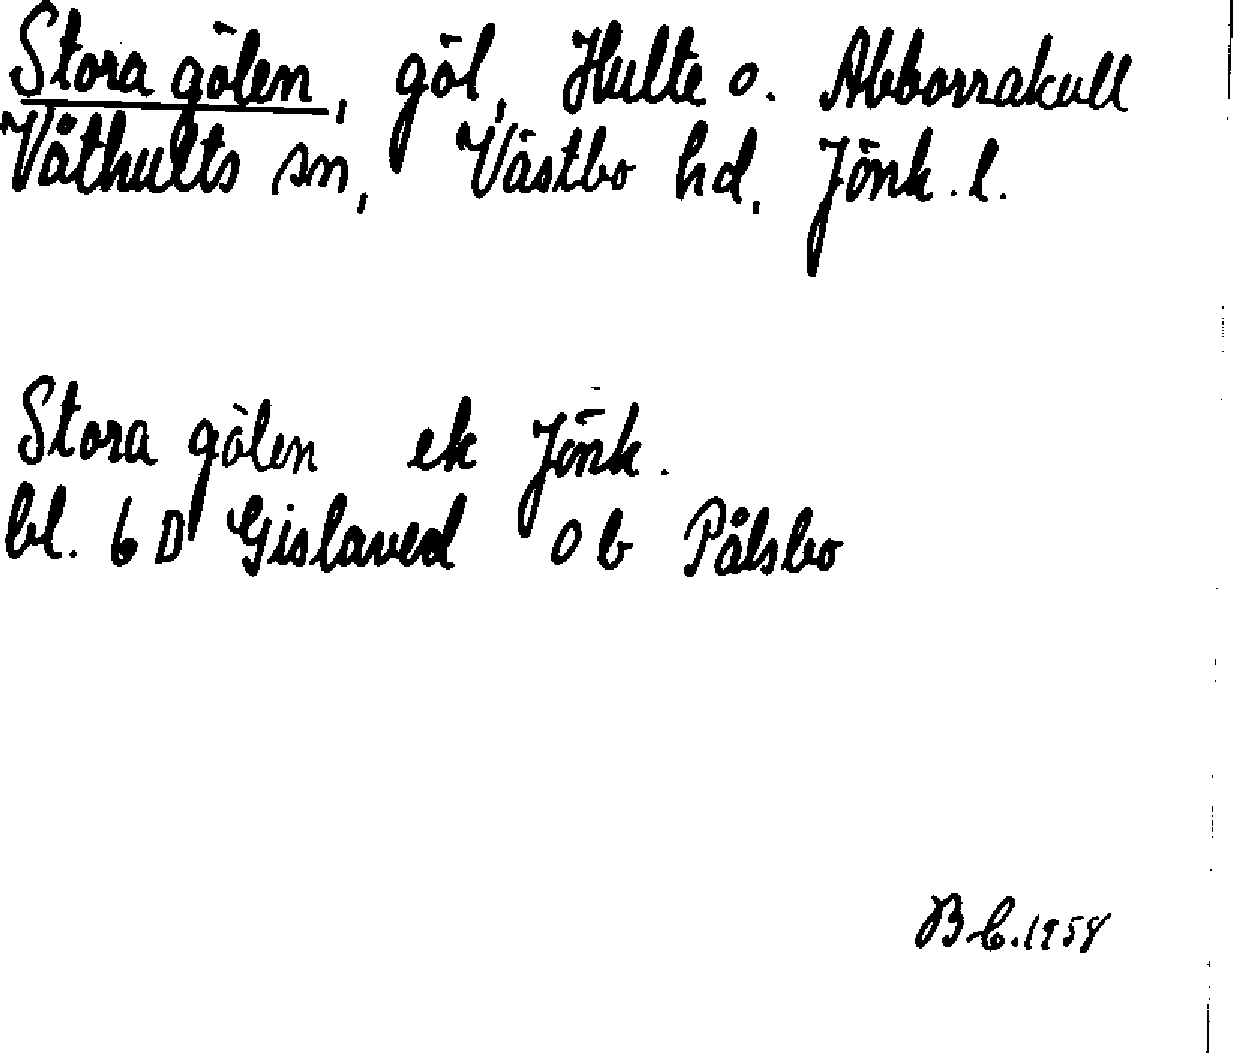 Stora gölen, göl, Hulte o. Abborrakull
Våthults sn, Västbo hd, Jönk. l.
Stora gölen ek Jönk.
bl. 6 D Gislaved 0 b Pålsbo
1958